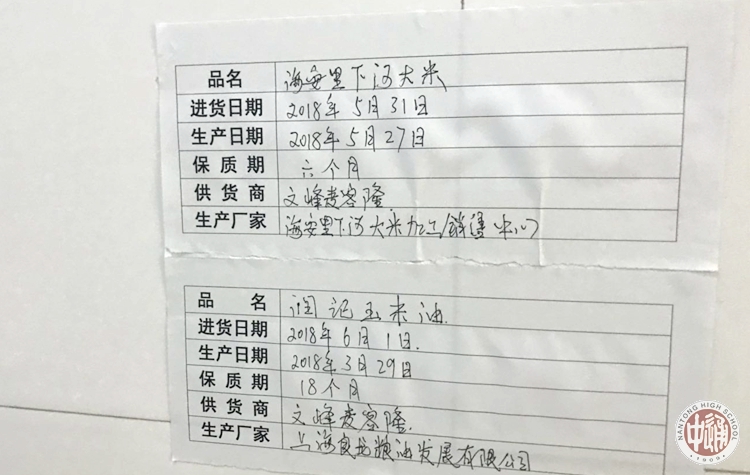 品名 海安里下河大米
进货日期 2018年5月31日
生产日期 2018年5月27日
保质期 六个月
供货商 文峰麦客隆
生产厂家 海安里下河大米加工销售中心
品名 润记玉米油
进货日期 2018年6月1日.
生产日期 2018年3月29日
保质期 18个月
供货商 文峰麦客隆.
生产厂家 上海良龙粮油发展有限公司
NANTONG HIGH SCHOOL
中通
1909